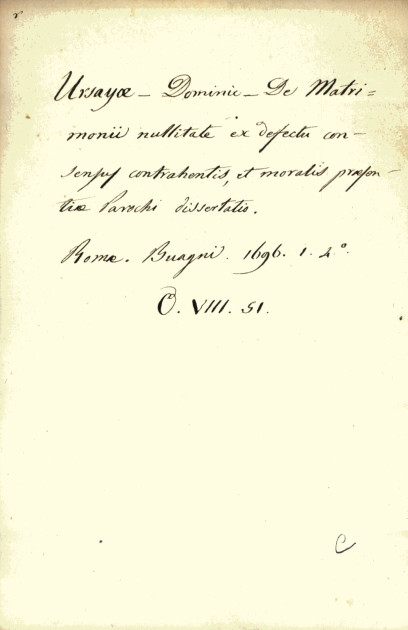 Ursayæ – Dominic – De Matri=
monii nullitate ex defectu con–
sensus contrahentis, et moralis præsen–
tiæ Parochi dissertatio.
Romæ. Buagni. 1696. 1. 4º.
O. VIII. 51.
C